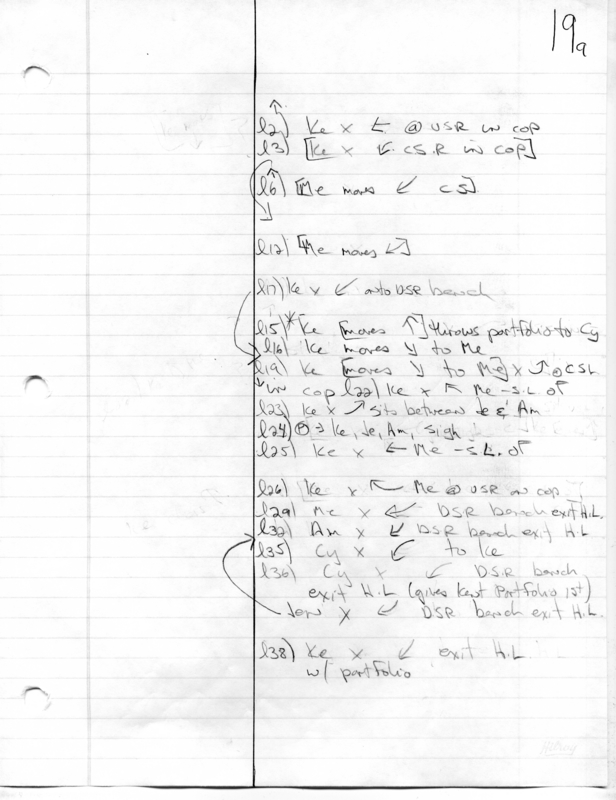 19a
l2) Ke x ← @ USR in cop
l3) [Ke x ↙ CSR in cop]
l6) [Me moves ↙ CS]
l12) [Me moves ↙]
l17) Ke x ↙ onto DSR bench
l15)* Ke [moves ↑] throws portfolio to Cy
l16) Ke moves ↘ to Me
l19) Ke [moves ↘ to Me] x ↗ @ CSL
in cop l22) Ke x ↖ Me -S.L. of
l23) Ke x ↗ sits between Je & Am
l24) → Ke, Je, Am, sigh
l25) Ke x ← Me -S.L. of
l26) Ke x ↖ Me @ USR in cop
l29) Me x ↙ DSR bench exit H.L.
l32) Am x ↙ DSR bench exit H.L
l35) Cy x ↙ to Ke
l36) Cy x ↙ DSR bench
exit H.L (gives Kent Portfolio 1st)
Jen x ↙ DSR bench exit H.L.
l38) Ke x ↙ exit H.L
w/ portfolio